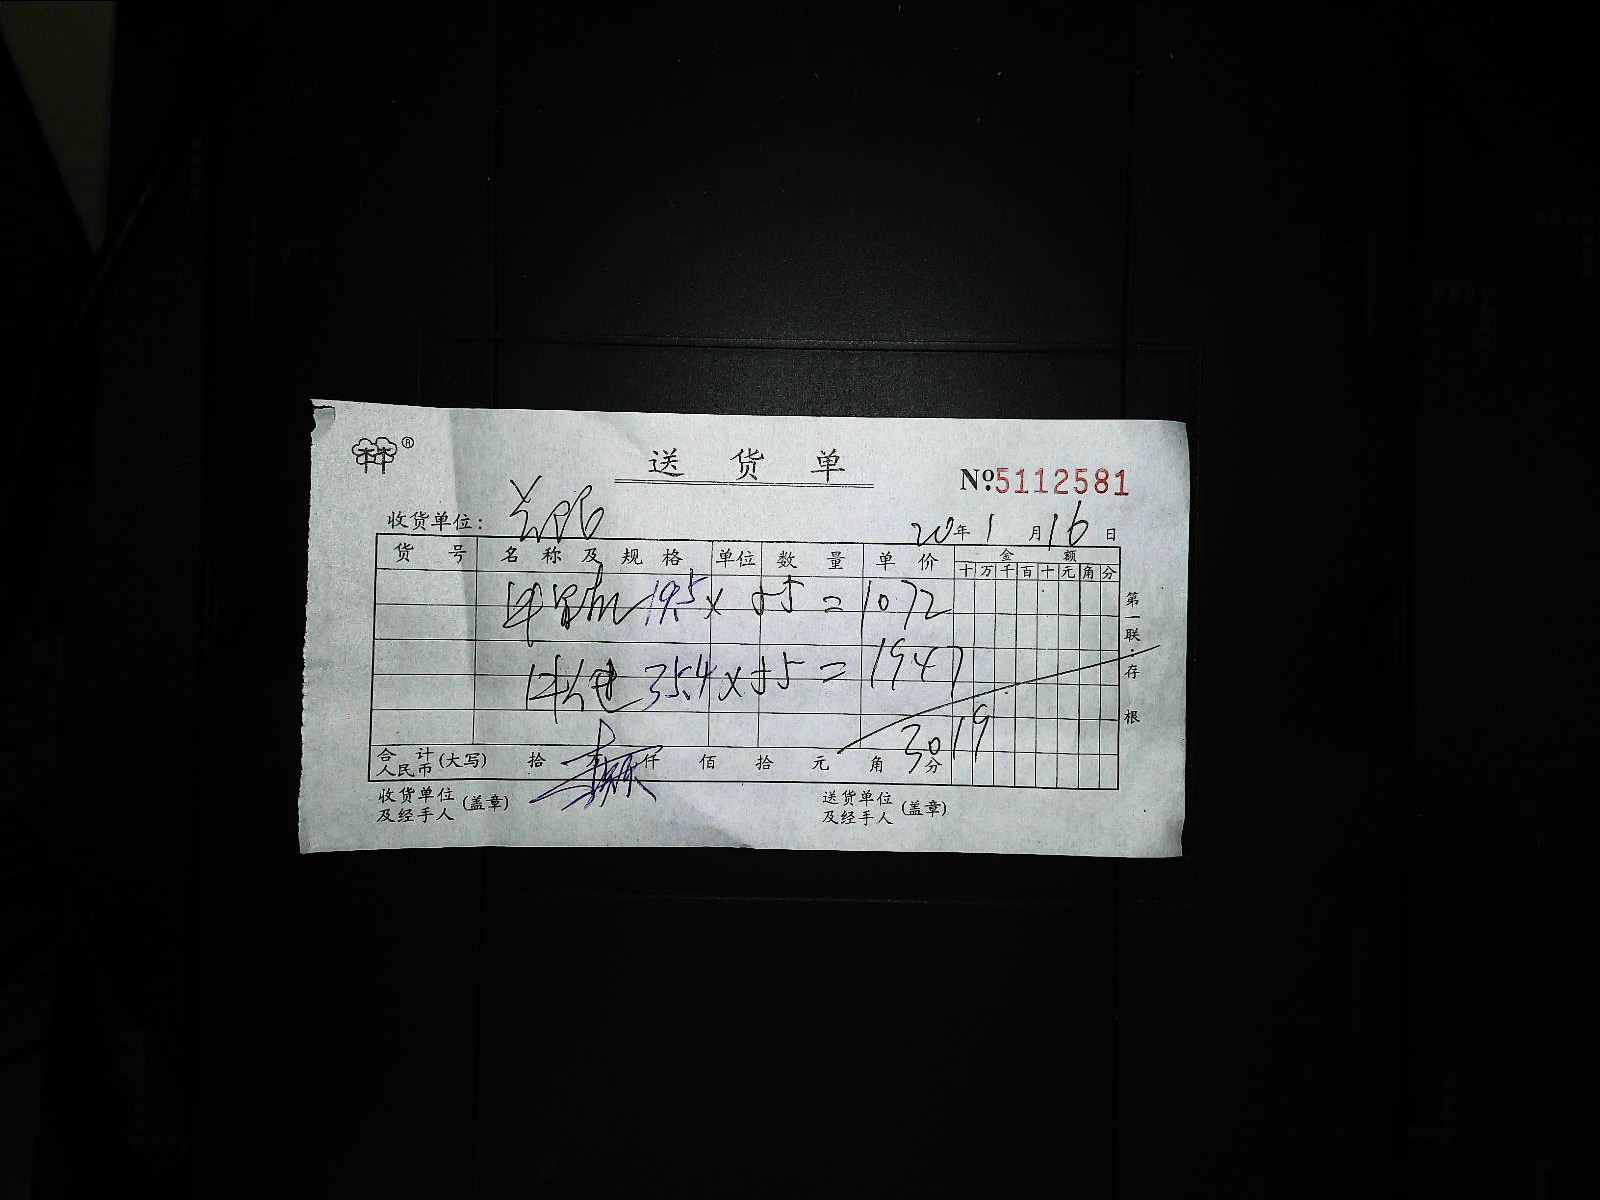 ®
送 货 单
№5112581
收货单位:
20年1月16日
货 号 名 称 及 规 格 单位 数 量 单 价 金 额
十万千百十元角分
19.5 x 55 = 1072
35.4 x 55 = 1947
3019
合 计 人民币 (大写) 拾 仟 佰 拾 元 角 分
收货单位及经手人 (盖章) 送货单位及经手人 (盖章)
第一联:存根